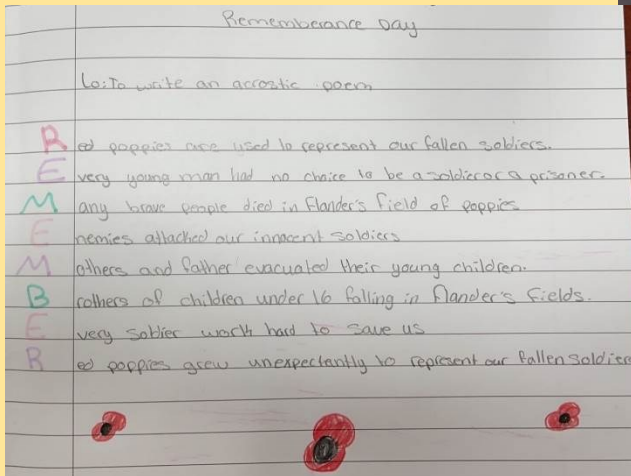 Rememberance Day
Lo: To write an acrostic poem
Red poppies are used to represent our fallen soldiers.
Every young man had no choice to be a soldier or a prisoner.
Many brave people died in flander's field of poppies
Enemies attached our innocent soldiers
Mothers and father evacuated their young children.
Brothers of children under 16 falling in flander's fields.
Every soldier work hard to save us
Red poppies grew unexpectantly to represent our fallen soldier